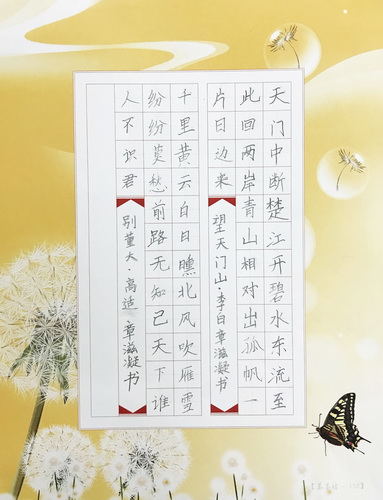 天门中断楚江开碧水东流至
此回两岸青山相对出孤帆一
片日边来
望天门山·李白章滋凝书
十里黄云白日曛北风吹雁雪
纷纷莫愁前路无知己天下谁
人不识君
别董大·高适章滋凝书